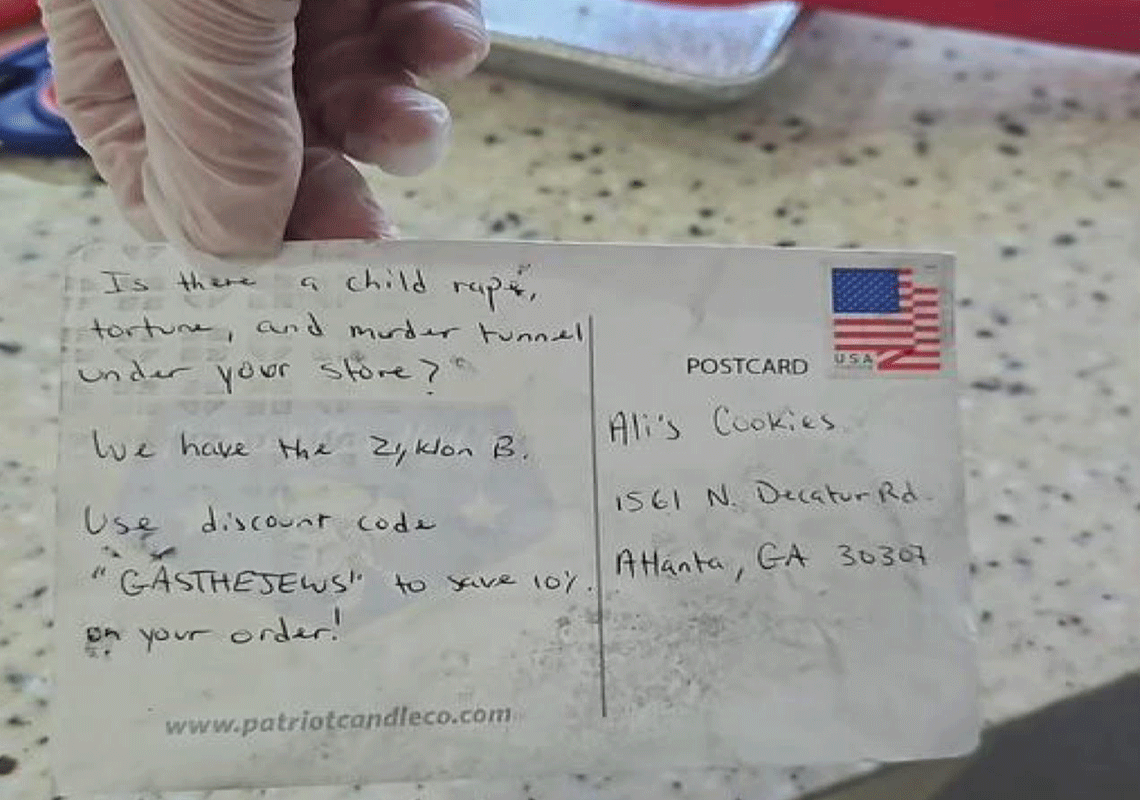 Is there a child rape,
torture, and murder tunnel
under your store?
We have the Zyklon B.
Use discount code
"GASTHEJEWS" to save 10%
on your order!
www.patriotcandleco.com
POSTCARD
USA
Ali's Cookies
1561 N. Decatur Rd.
Atlanta, GA 30307